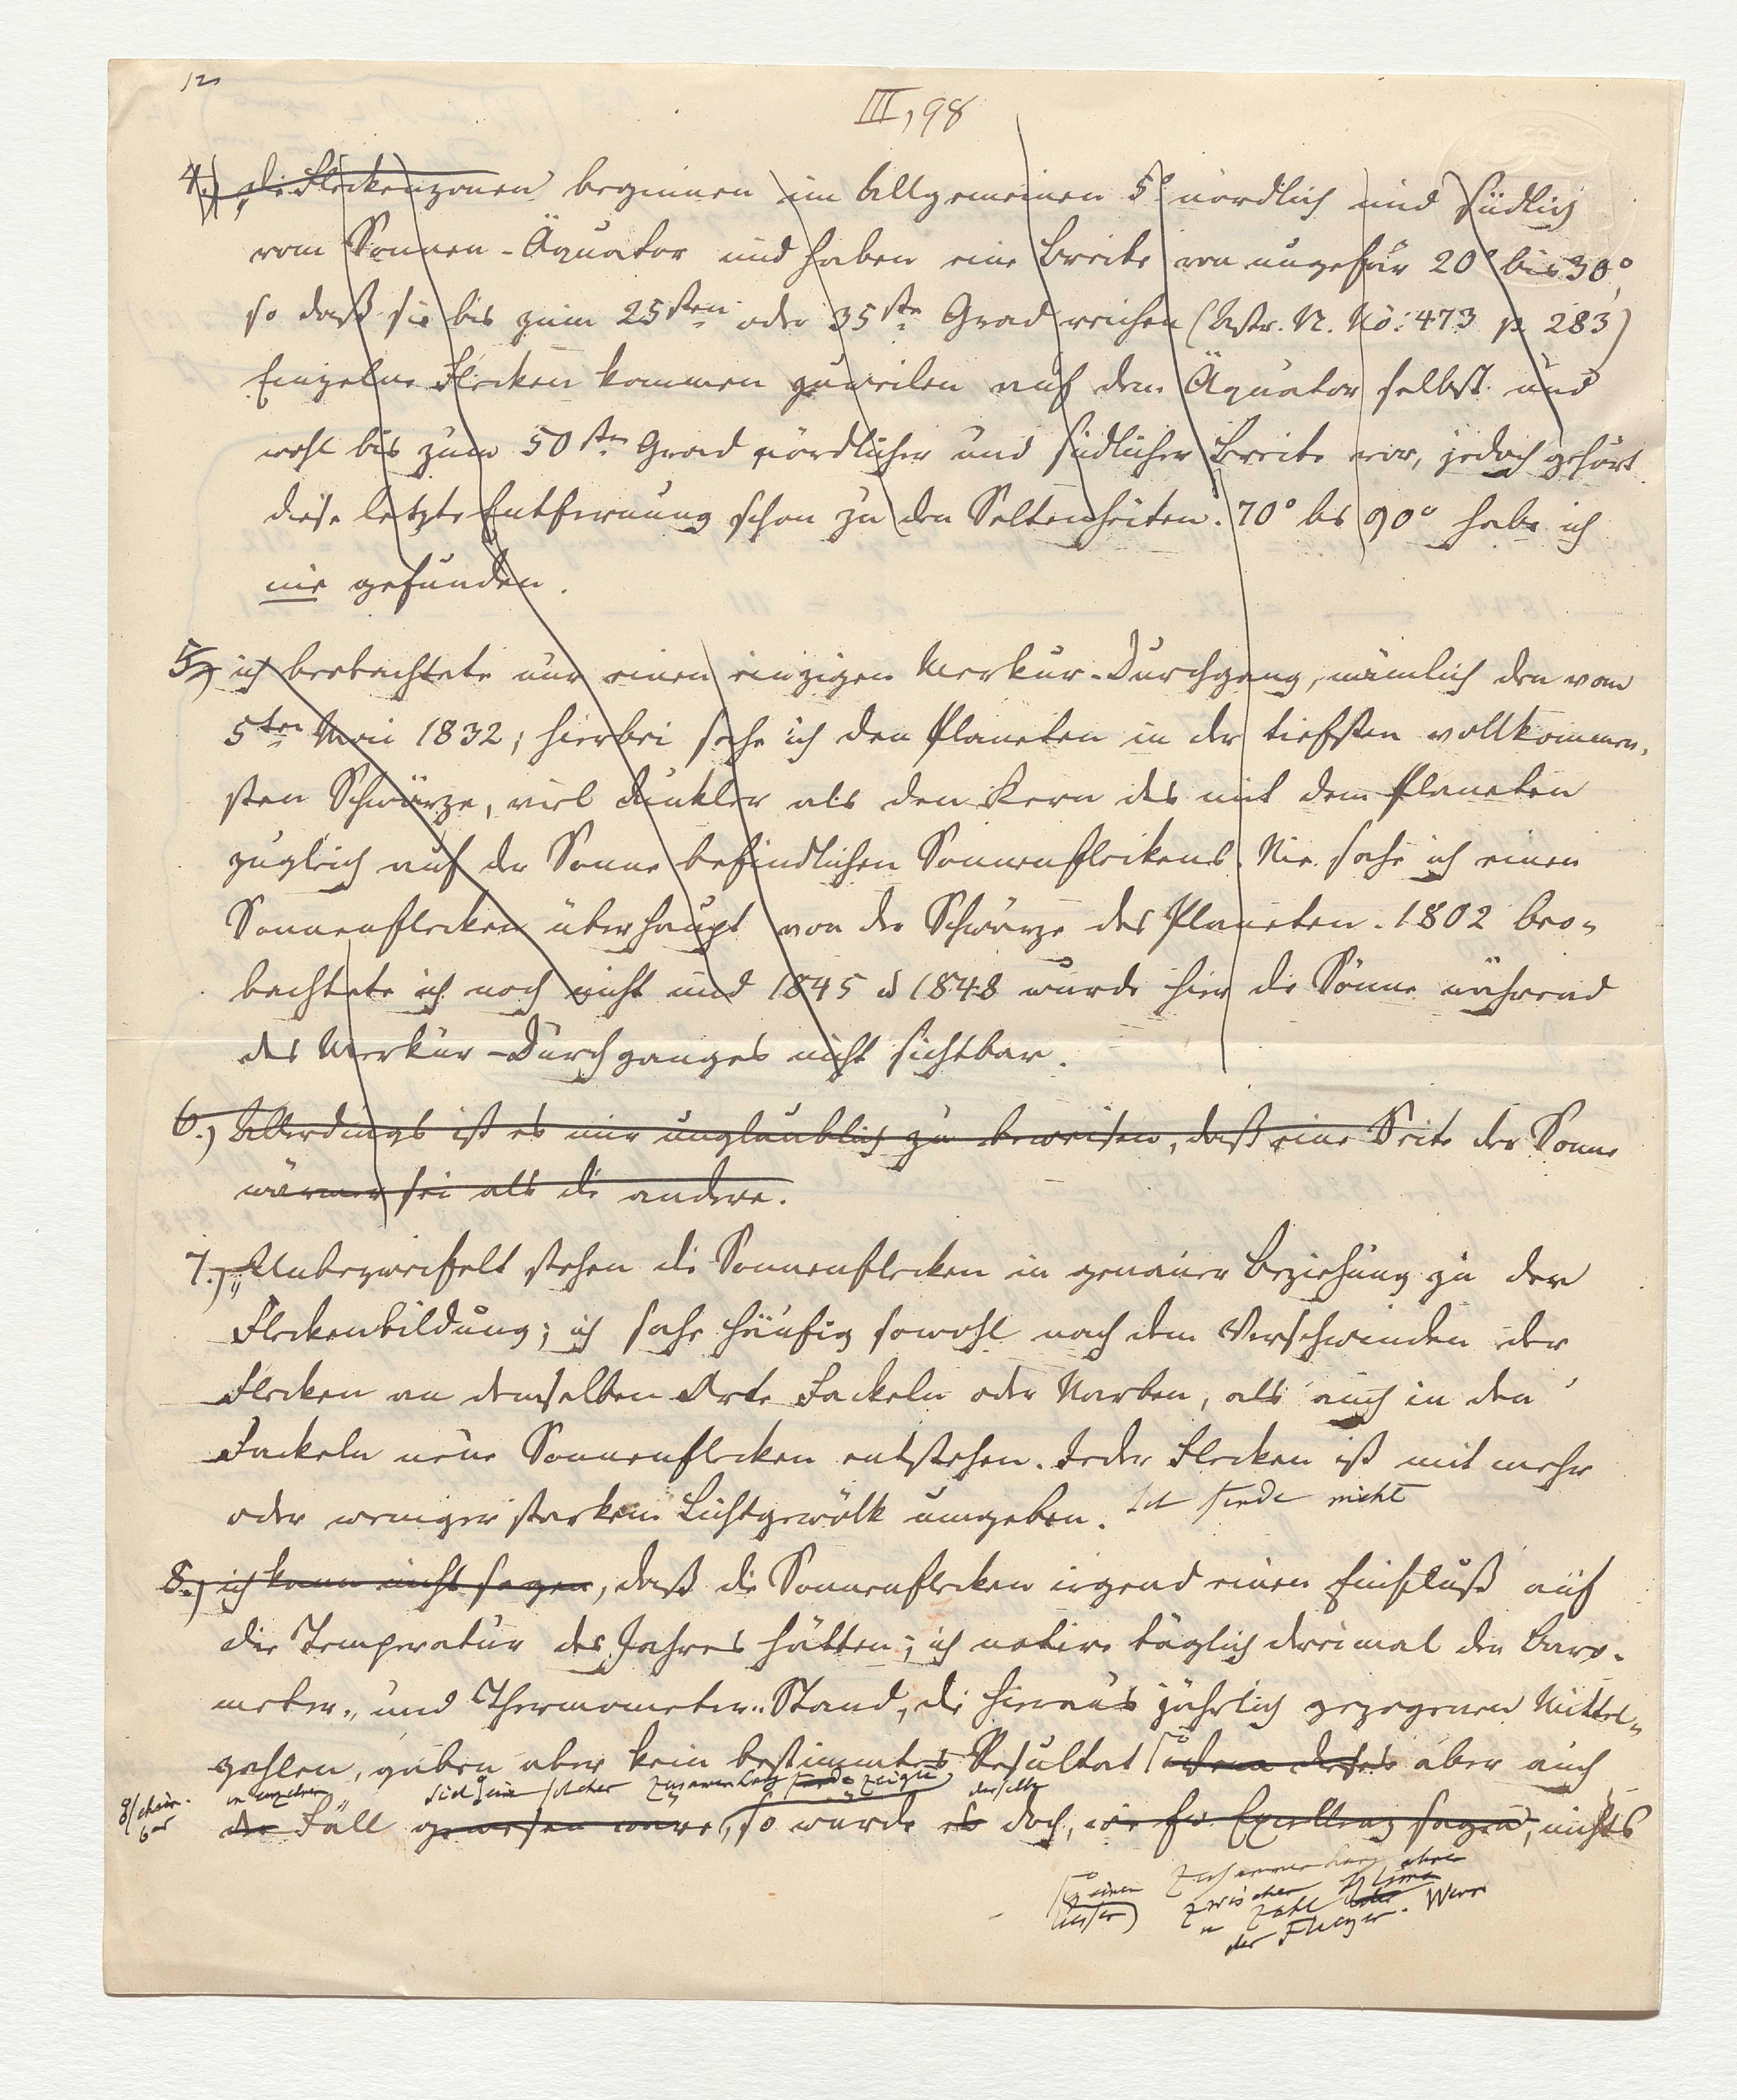 12
III, 98
4.) „die Fleckenzonen beginnen im Allgemeinen 5° nördlich und südlich
vom Sonnen-Äquator und haben eine Breite von ungefär 20° bis 30°,
so daß sie bis zum 25sten oder 35sten Grad reichen (Astr. N. No: 473 p. 283)
Einzelne Flecken kommen zuweilen auf dem Äquator selbst und
wohl bis zum 50sten Grad nördlicher und südlicher Breite vor, jedoch gehört
diese letzte Entfernung schon zu den Seltenheiten. 70° bis 90° habe ich
nie gefunden.
5.) ich beobachtete nur einen einzigen Merkur-Durchgang, nämlich den vom
5ten Mai 1832; hierbei sahe ich den Planeten in der tiefsten vollkommen-
sten Schwärze, viel dunkler als den Kern des mit dem Planeten
zugleich auf der Sonne befindlichen Sonnenfleckens. Nie sahe ich einen
Sonnenflecken überhaupt von der Schwärze des Planeten. 1802 beo-
bachtete ich noch nicht und 1845 u 1848 wurde hier die Sonne während
des Merkur-Durchganges nicht sichtbar.
6.) Allerdings ist es mir unglaublich zu beweisen, daß eine Seite der Sonne
wärmer sei als die andere.
7.) „Unbezweifelt stehen die Sonnenflecken in genauer Beziehung zu der
Fleckenbildung; ich sahe häufig sowohl nach dem Verschwinden der
Flecken an demselben Orte Fackeln oder Narben, als auch in den
Fackeln neue Sonnenflecken entstehen. Jeder Flecken ist mit mehr
oder weniger starkem Lichtgewölk umgeben. Ich finde nicht
8.) ich kann nicht sagen, daß die Sonnenflecken irgend einen Einfluß auf
die Temperatur des Jahres hätten; ich notire täglich dreimal den Baro-
meter- und Thermometer-Stand, die hieraus jährlich gezogenen Mittel-
zahlen, gaben aber kein bestimmtes Resultat aber auch
in einzelnen solcher Zusammenhang zeigte derselbe
der Fall gewesen wäre, so wurde es doch, wie Ew. Excellenz sagen, nichts
einen Zusammenhang
zwischen Klima
u Zahl
der Flecken. Wenn